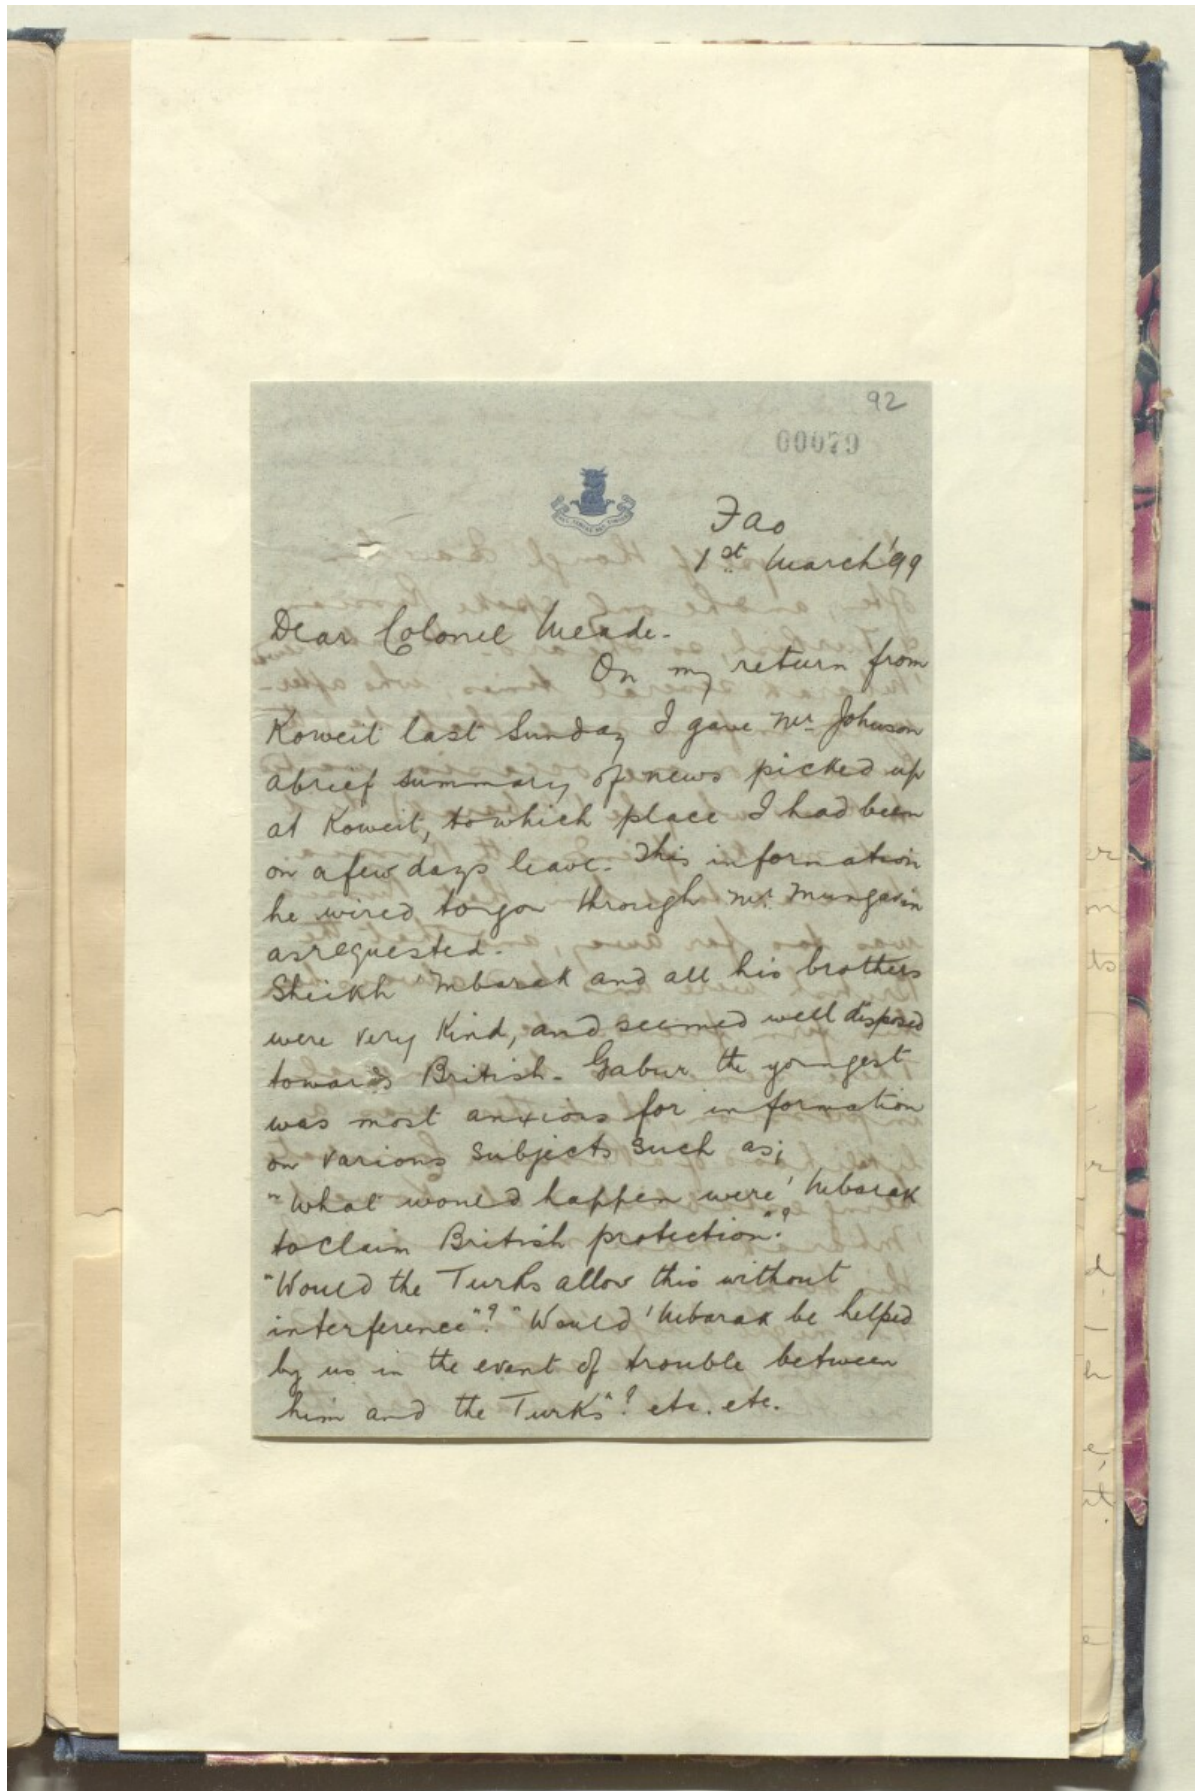 92
00079
Fao
1st March '99
Dear Colonel Meade.
On my return from
Koweit last Sunday I gave Mr. Johnson
a brief summary of news picked up
at Koweit, to which place I had been
on a few days leave. This information
he wired to you through Mr. Mungavin
as requested.
Sheikh Mbarak and all his brothers
were very kind, and seemed well disposed
towards British. Gabur the youngest
was most anxious for information
on various subjects such as;
"What would happen were 'Mbarak
to claim British protection"?
"Would the Turks allow this without
interference"? "Would 'Mbarak be helped
by us in the event of trouble between
him and the Turks"? etc. etc.